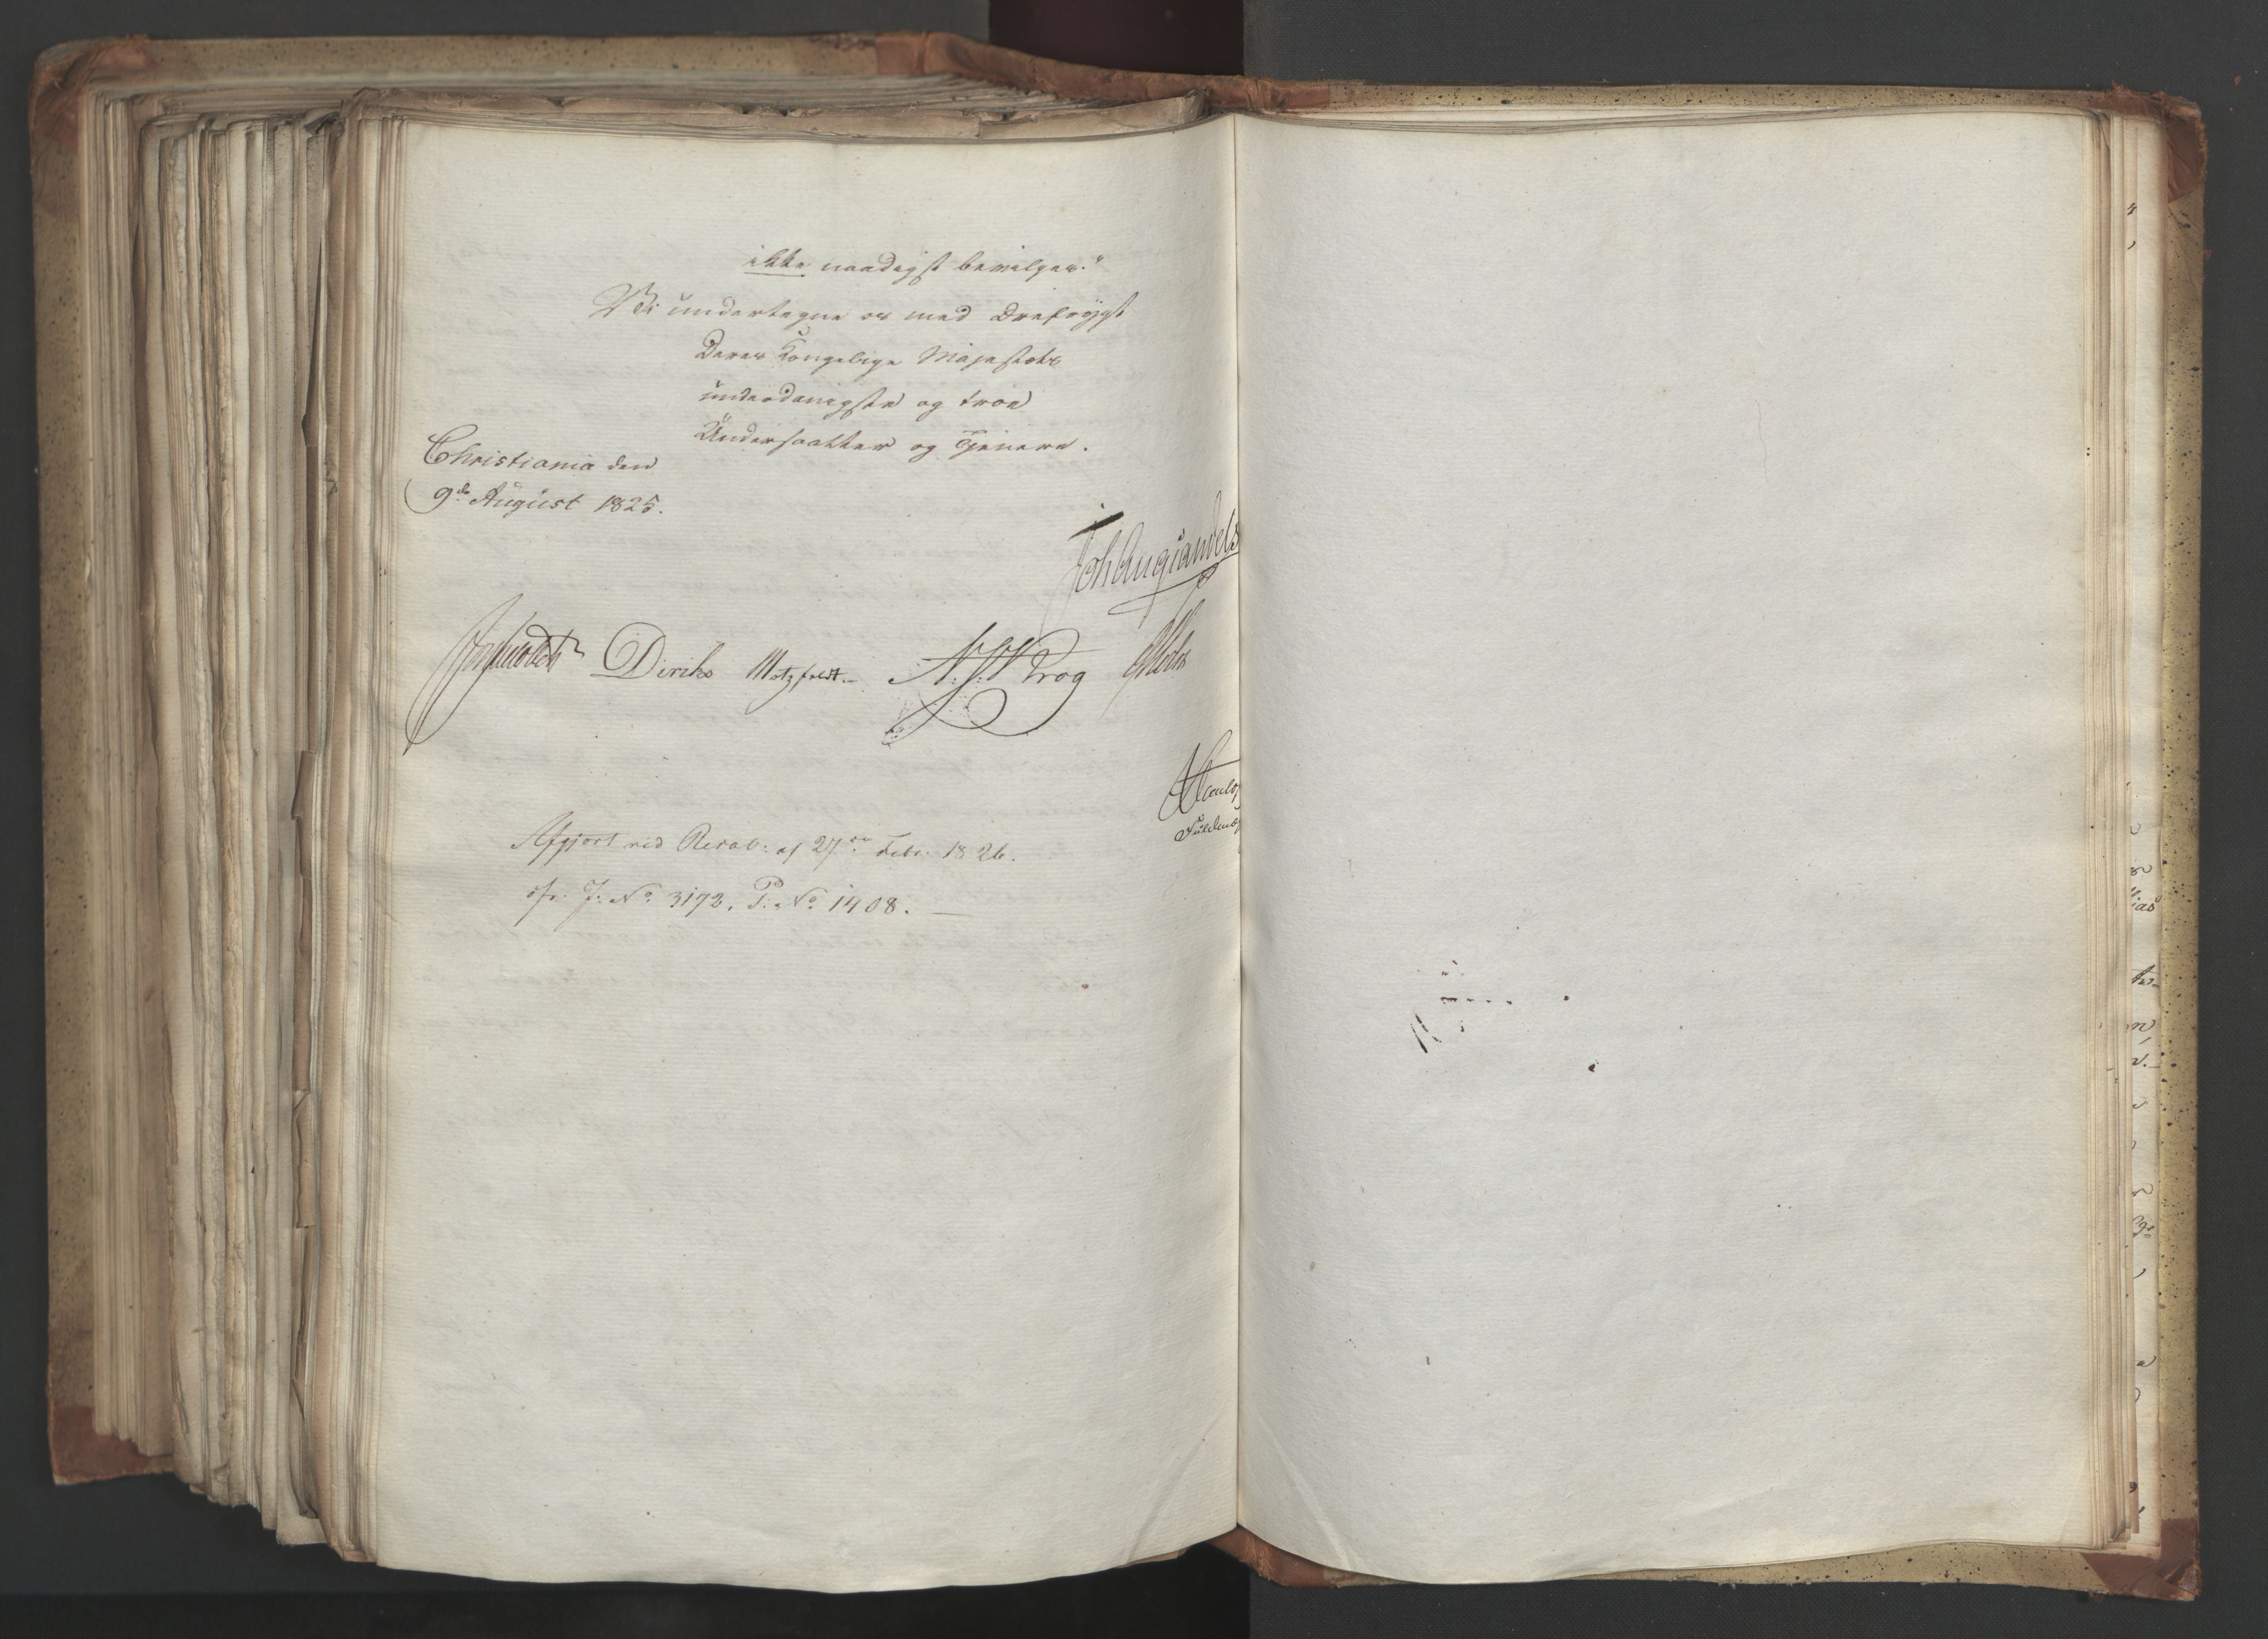 ikke naadigst bevilges."
Vi undertegne os med dybefrygt
Deres Kongelige Majestæts
underdanigste og troe
Undersaatter og Tjenere.
Christiania den
9de August 1825.
Joh Aug Sandels
Diriks Motzfeldt. N. J. Krog Holst
Afgjort ved Resol: af 27de Febr. 1826.
cfr. J: No 3172. P: No 1408. —